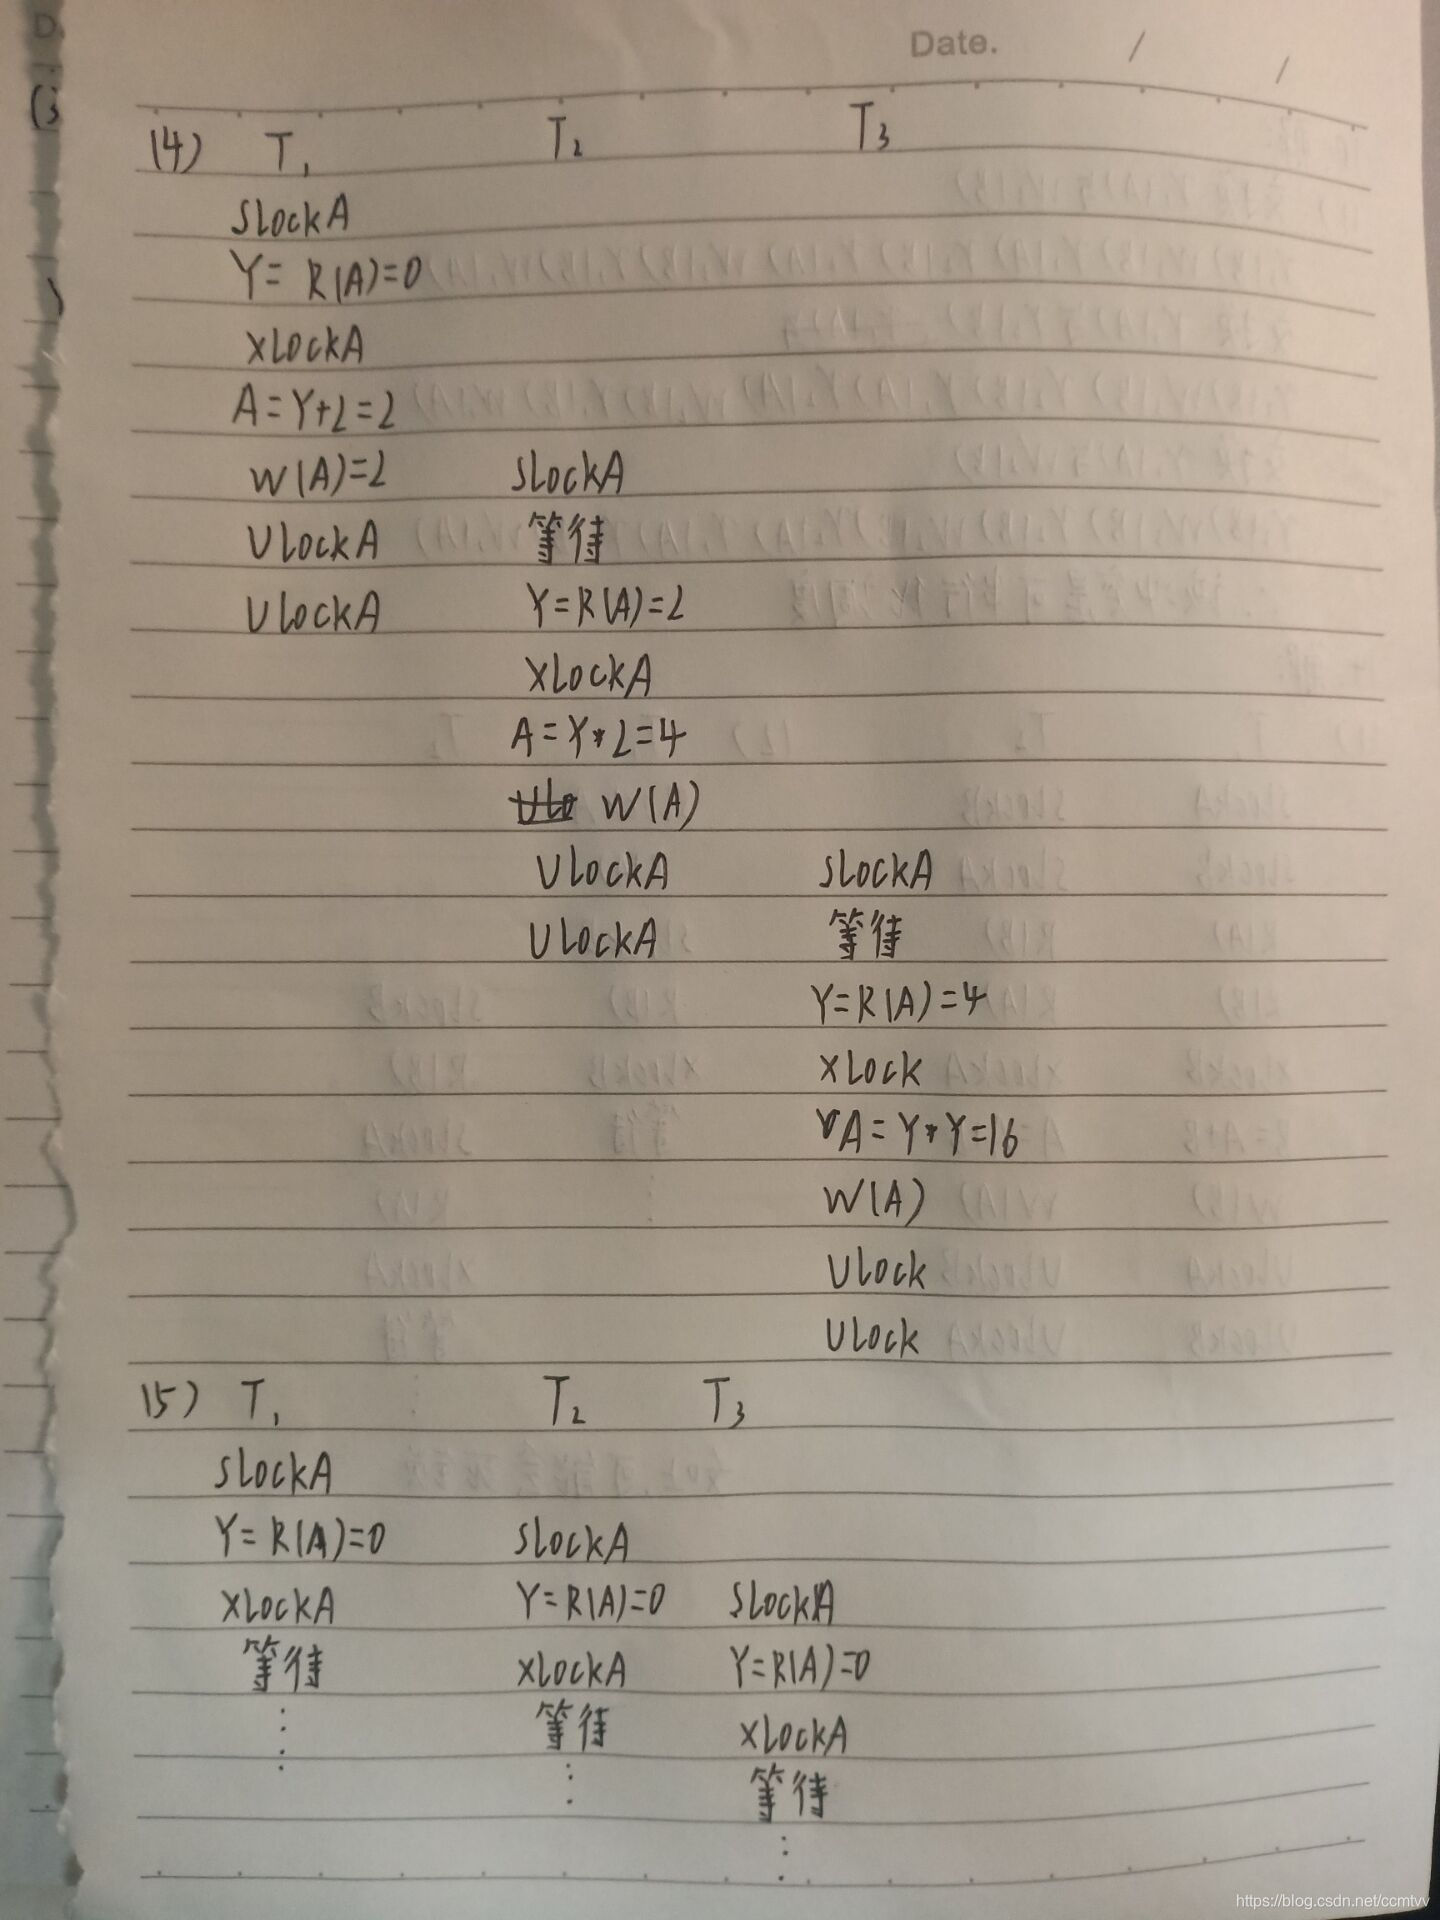 Date. / /
(4) T1 T2 T3
SLockA
Y= R(A)=0
XLockA
A=Y+2=2
W(A)=2 SLockA
ULockA 等待
ULockA Y=R(A)=2
XLockA
A=Y*2=4
W(A)
ULockA SLockA
ULockA 等待
Y=R(A)=4
XLock
A=Y*Y=16
W(A)
ULock
ULock
(5) T1 T2 T3
SLockA
Y=R(A)=0 SLockA
XLockA Y=R(A)=0 SLockA
等待 XLockA Y=R(A)=0
⋮ 等待 XLockA
⋮ 等待
⋮
https://blog.csdn.net/ccmtvv